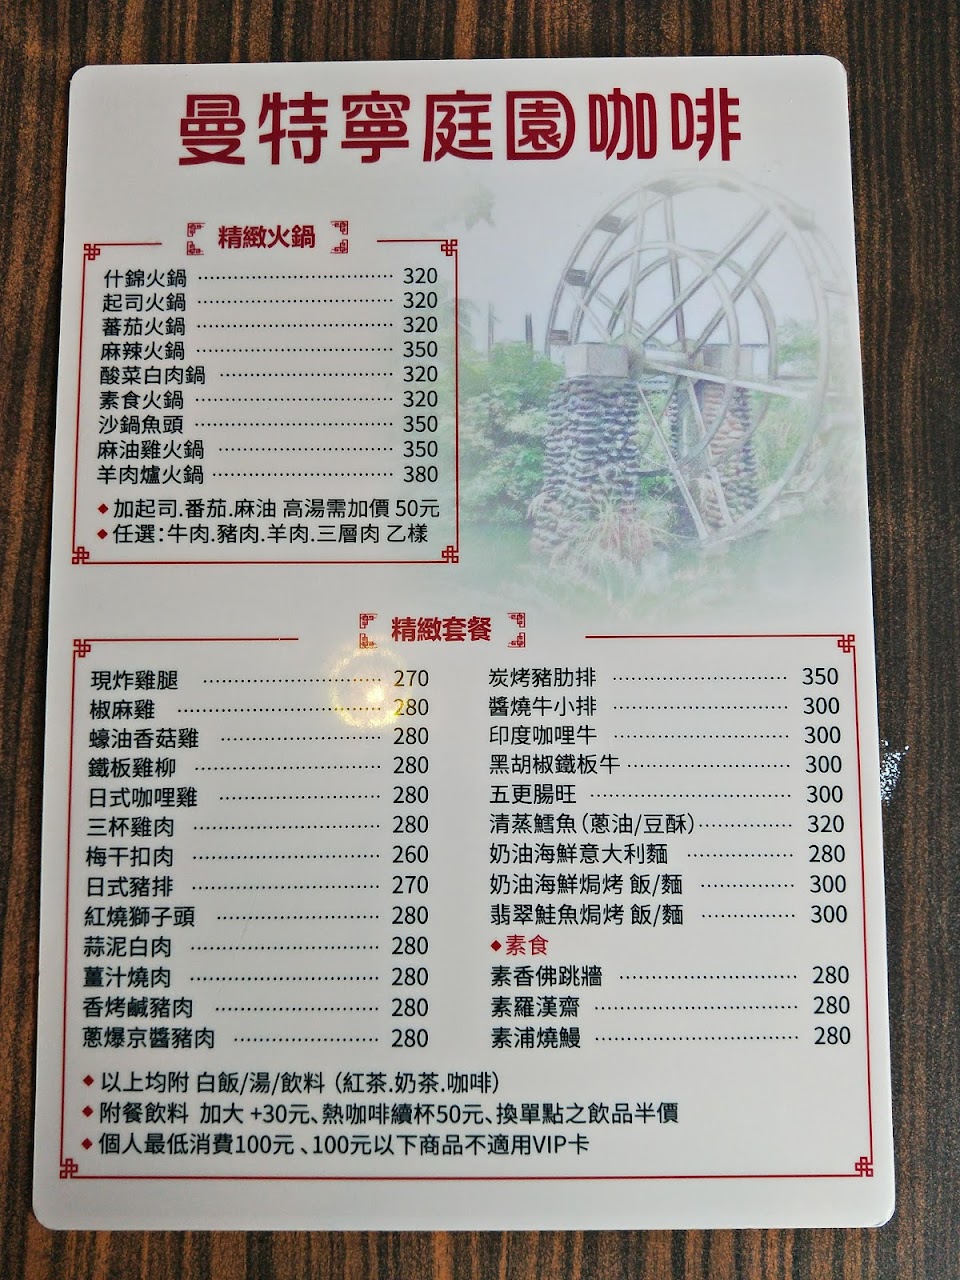 曼特寧庭園咖啡
精緻火鍋
什錦火鍋 320
起司火鍋 320
蕃茄火鍋 320
麻辣火鍋 350
酸菜白肉鍋 320
素食火鍋 320
沙鍋魚頭 350
麻油雞火鍋 350
羊肉爐火鍋 380
◆加起司.番茄.麻油 高湯需加價 50元
◆任選:牛肉.豬肉.羊肉.三層肉 乙樣
精緻套餐
現炸雞腿 270
椒麻雞 280
蠔油香菇雞 280
鐵板雞柳 280
日式咖哩雞 280
三杯雞肉 280
梅干扣肉 260
日式豬排 270
紅燒獅子頭 280
蒜泥白肉 280
薑汁燒肉 280
香烤鹹豬肉 280
蔥爆京醬豬肉 280
炭烤豬肋排 350
醬燒牛小排 300
印度咖哩牛 300
黑胡椒鐵板牛 300
五更腸旺 300
清蒸鱈魚(蔥油/豆酥) 320
奶油海鮮意大利麵 280
奶油海鮮焗烤 飯/麵 300
翡翠鮭魚焗烤 飯/麵 300
◆素食
素香佛跳牆 280
素羅漢齋 280
素浦燒鰻 280
◆以上均附 白飯/湯/飲料 (紅茶.奶茶.咖啡)
◆附餐飲料 加大 +30元、熱咖啡續杯50元、換單點之飲品半價
◆個人最低消費100元、100元以下商品不適用VIP卡